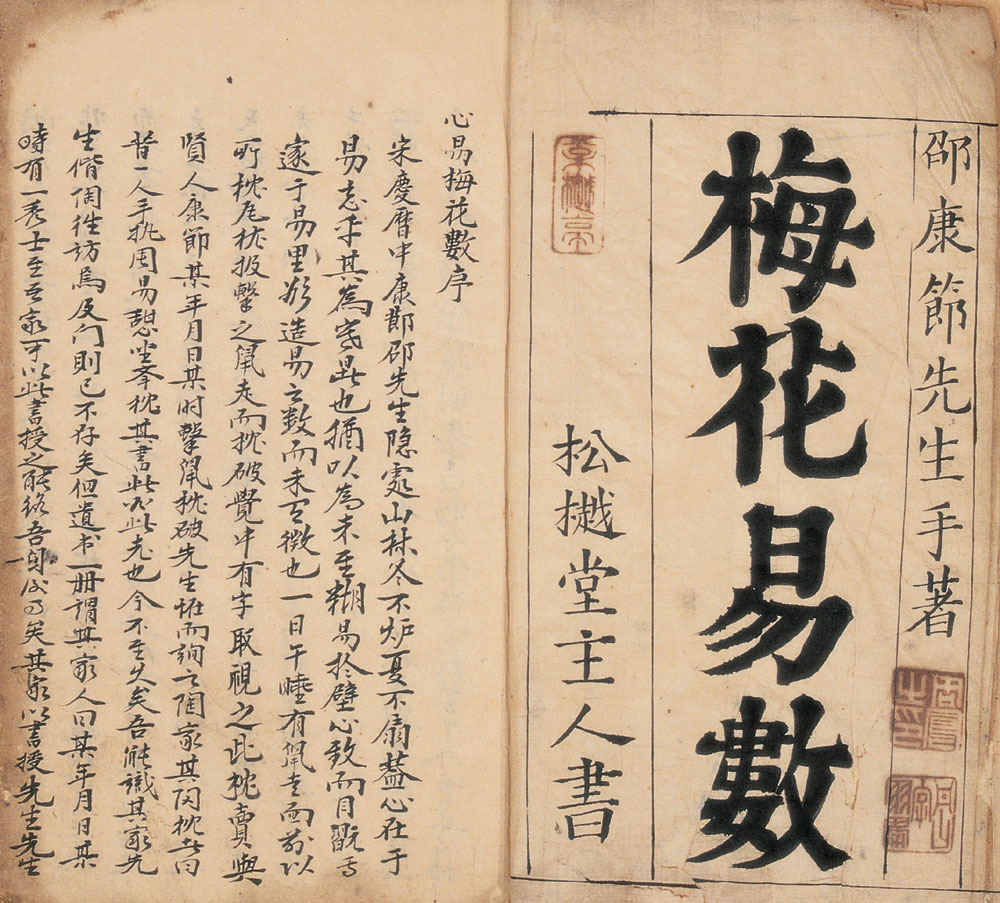 邵康節先生手著
梅花易數
松樾堂主人書
心易梅花數序
宋慶曆中康節邵先生隐處山林冬不炉夏不扇蓋心在于
易忘乎其為寒暑也猶以為未至糊易於壁心致而目翫焉
邃于易里欲造易之數而未有徴也一日午睡有鼠走而前以
所枕瓦枕投擊之鼠走而枕破覺中有字取視之此枕賣與
賢人康節某年月日某时擊鼠枕破先生怪而詢之陶家其閃枕者曰
昔一人手执周易憩坐举枕其書此必此老也今不至久矣吾能識其家先
生偕陶往訪焉及门則已不存矣但遺书一册謂其家人曰某年月日某
時有一秀士至吾家可以此書授之能終吾身後事矣其家以書授先生先生